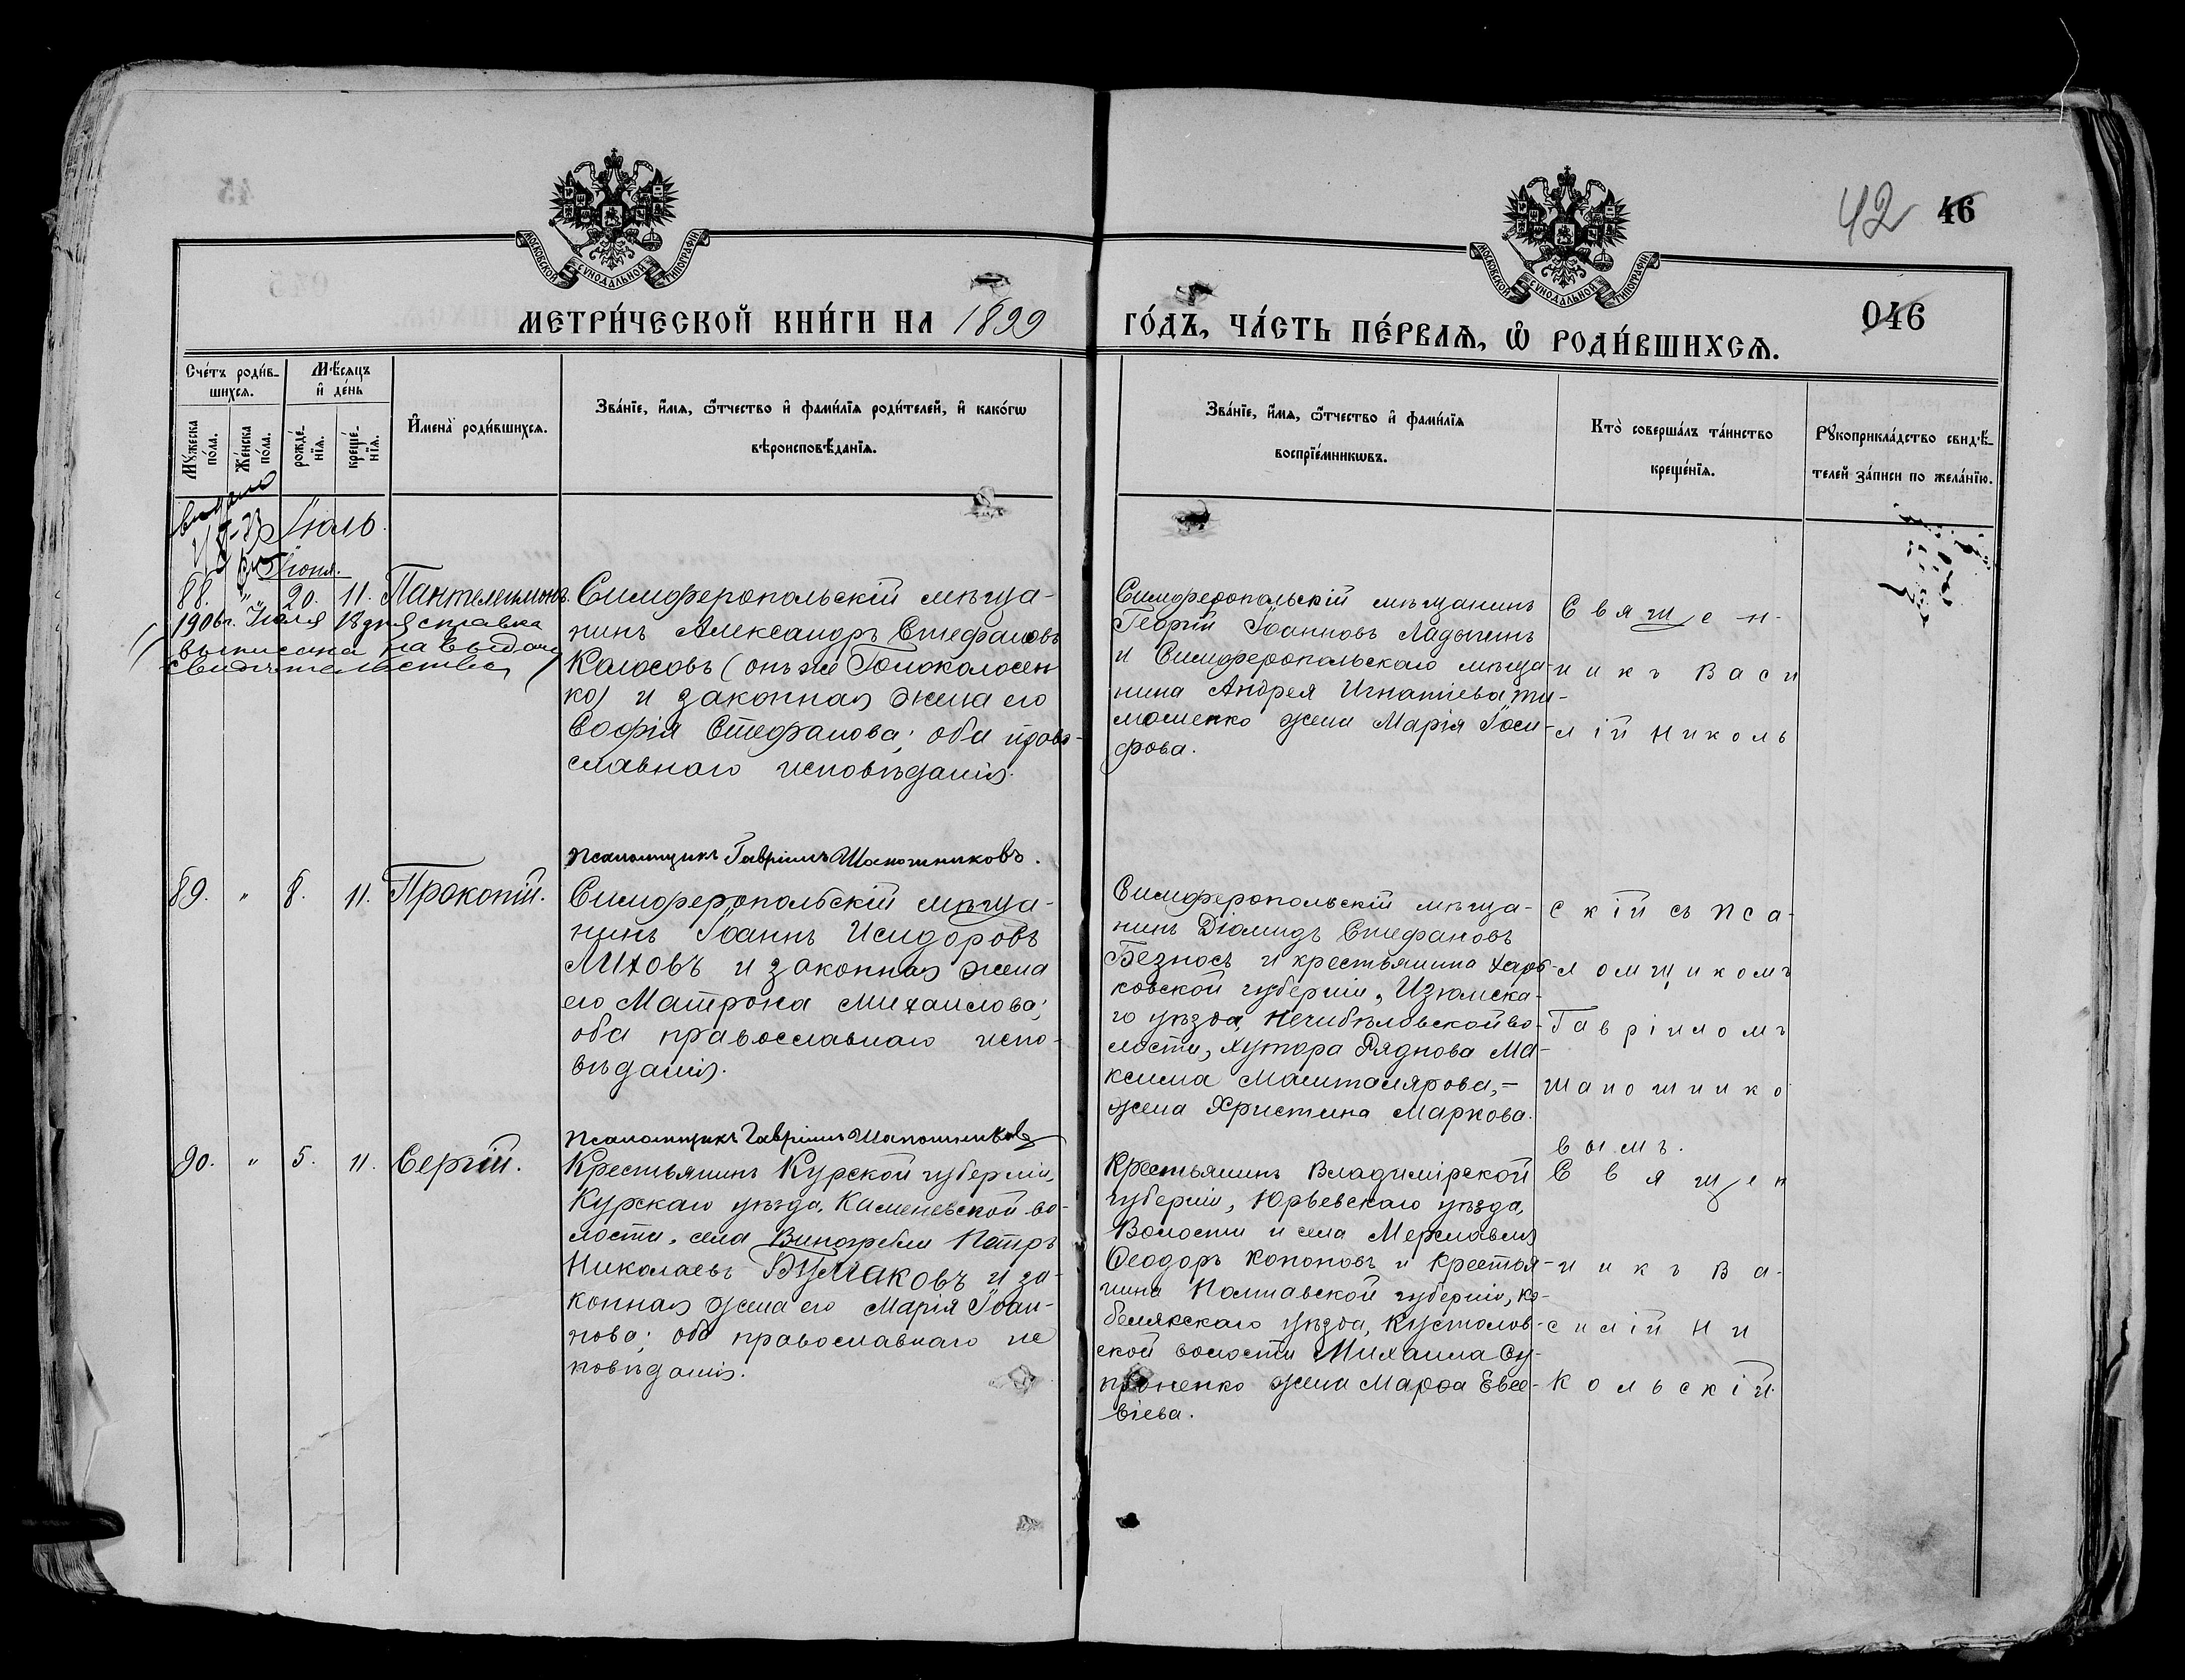 42 46
МОСКОВСКОЙ СѴНОДАЛЬНОЙ ТИПОГРАФІИ
МОСКОВСКОЙ СѴНОДАЛЬНОЙ ТИПОГРАФІИ
046
МЕТРИ́ЧЕСКОЙ КНИ́ГИ НА 1899
ГО́ДЪ, ЧА́СТЬ ПЕ́РВАѦ, Ѽ РОДИ́ВШИХСѦ.
Сче́тъ роди́в-
шихсѧ.
Мѣ́сѧцъ
и҆ де́нь
Мꙋ́жеска
по́ла.
Же́нска
по́ла.
рожде́-
нїѧ.
креще́-
нїѧ.
И҆мена̀ роди́вшихсѧ.
Зва́нїе, и҆́мѧ, ѻ҆́тчество и҆ фами́лїѧ роди́телей, и҆ како́гѡ
вѣроисповѣ́данїѧ.
Зва́нїе, и҆́мѧ, ѻ҆́тчество и҆ фами́лїѧ
воспрїе́мникѡвъ.
Кто̀ соверша́лъ та́инство
креще́нїѧ.
Рꙋкоприкла́дство свидѣ́-
телей за́писи по жела́нїю.
выдано
Іюль.
Іюня.
88. " 20. 11. Пантелеимонъ.
1906г. Іюля 18 дня справка
выписана на выдачу
свидѣтельства
Симферопольскій мѣща-
нинъ Александръ Стефановъ
Колосовъ (онъ же Голоколосен
ко) и законная жена его
Софія Стефанова; оба право-
славнаго исповѣданія.
Симферопольскій мѣщанинъ
Георгій Іоанновъ Ладыгинъ
и Симферопольскаго мѣща-
нина Андрея Игнатіева Ти-
мошенко жена Марія Іоси-
фова.
Священ-
никъ Васи
лій Николь
Псаломщикъ Гавріилъ Шапошниковъ.
89. " 8. 11. Прокопій.
Симферопольскій мѣща-
нинъ Іоаннъ Исидоровъ
Миховъ и законная жена
его Матрона Михаилова;
оба православнаго испо-
вѣданія.
Симферопольскій мѣща-
нинъ Діомидъ Стефановъ
Безносъ и крестьянина Харь-
ковской губерніи, Изюмска-
го уѣзда, во-
лости, хутора Ряднова Ма-
ксима Машталярова,-
жена Христина Маркова.
скій съ Пса-
ломщикомъ
Гавріиломъ
Шапошнико
вымъ.
Псаломщикъ Гавріилъ Шапошниковъ
90. " 5. 11. Сергій.
Крестьянинъ Курской губерніи,
Курскаго уѣзда, Каменевской во-
лости, села Виногробли Петръ
Николаевъ Бумаковъ и за-
конная жена его Марія Іоан-
нова; оба православнаго ис
повѣданія.
Крестьянинъ Владимірской
губерніи, Юрьевскаго уѣзда,
Волости и села
Ѳеодоръ Кононовъ и крестья-
нина Полтавской губерніи, Ко-
белякскаго уѣзда, Кустолов-
ской волости Михаила Су-
проненко жена Марѳа Евсе-
віева.
Священ
никъ Ва-
силій Ни
кольскій.